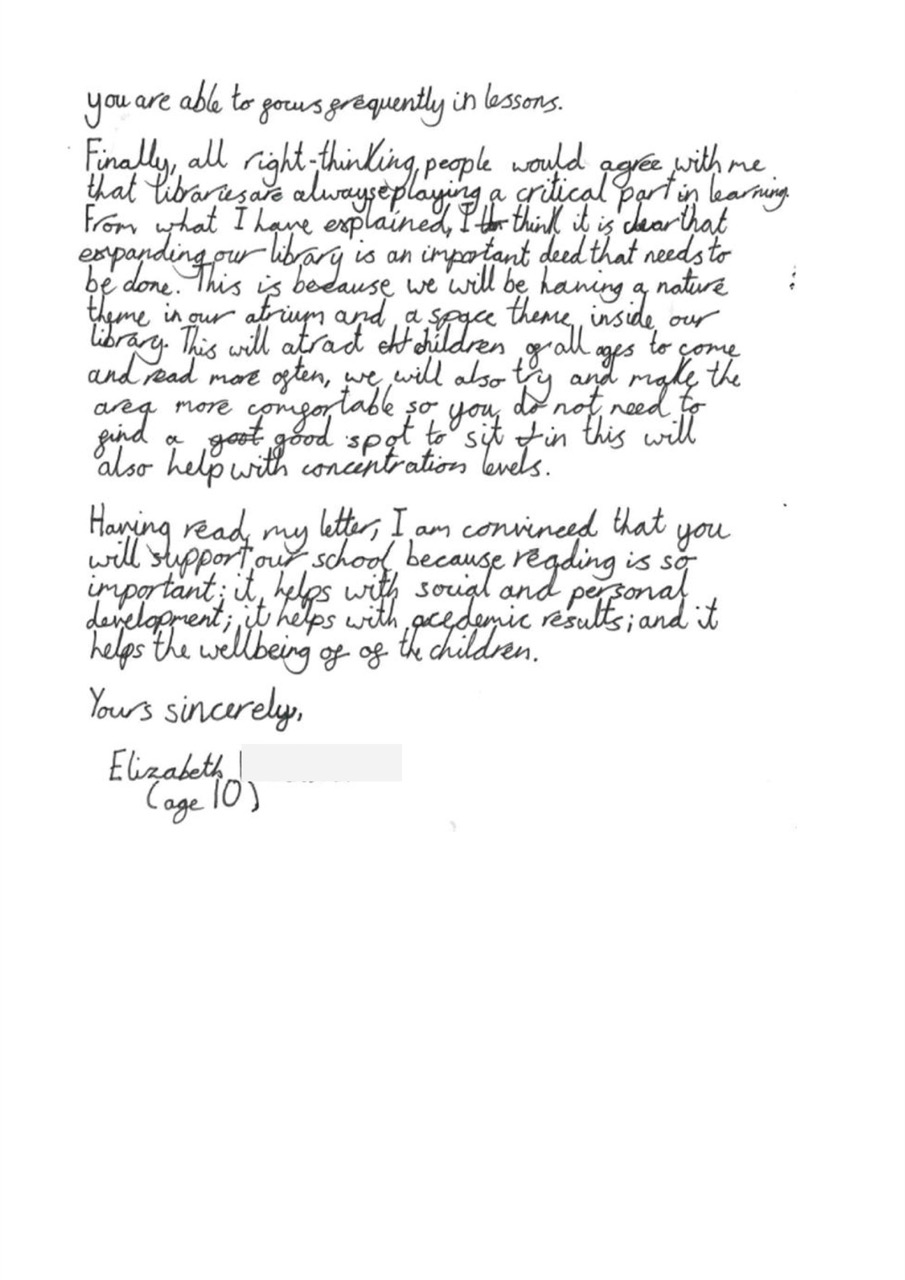 you are able to focus frequently in lessons.
Finally, all right-thinking people would agree with me
that libraries are always playing a critical part in learning.
From what I have explained, I think it is clear that
expanding our library is an important deed that needs to
be done. This is because we will be having a nature
theme in our atrium and a space theme inside our
library. This will atract children of all ages to come
and read more often, we will also try and make the
area more comfortable so you do not need to
find a good spot to sit in this will
also help with concentration levels.
Having read my letter, I am convinced that you
will support our school because reading is so
important: it helps with social and personal
development; it helps with acedemic results; and it
helps the wellbeing of of the children.
Yours sincerely,
Elizabeth
(age 10)